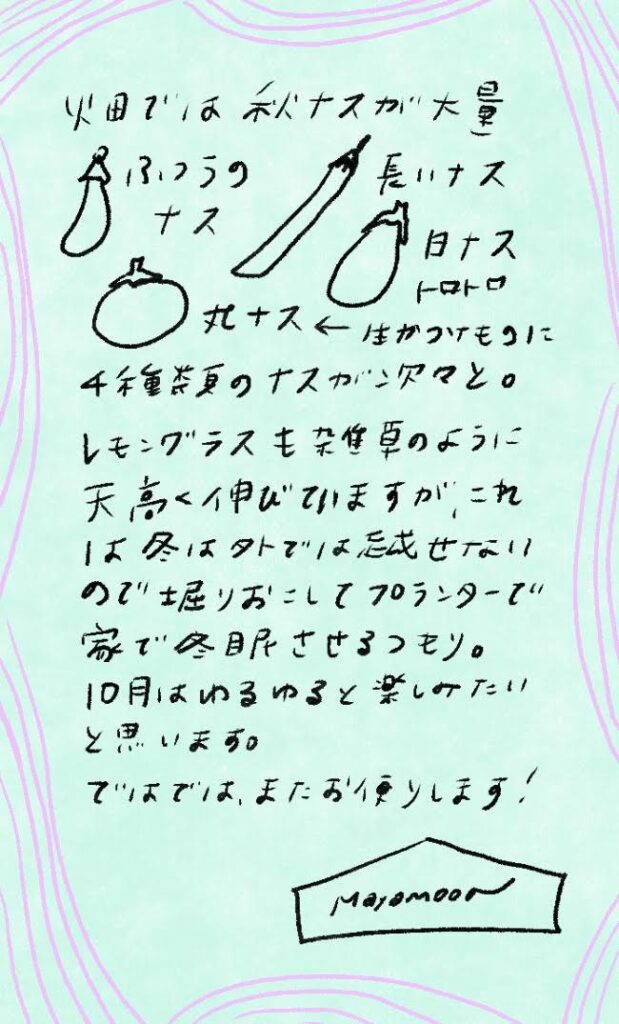 畑では秋ナスが大量
ふつうの
ナス
長いナス
白ナス
トロトロ
丸ナス ← 生がつけものに
4種類のナスが次々と。
レモングラスも雑草のように
天高く伸びていますが、これ
は冬は外では越せない
ので堀りおこしてプランターで
家で冬眠させるつもり。
10月はゆるゆると楽しみたい
と思います。
ではでは、またお便りします!
Mayamoon